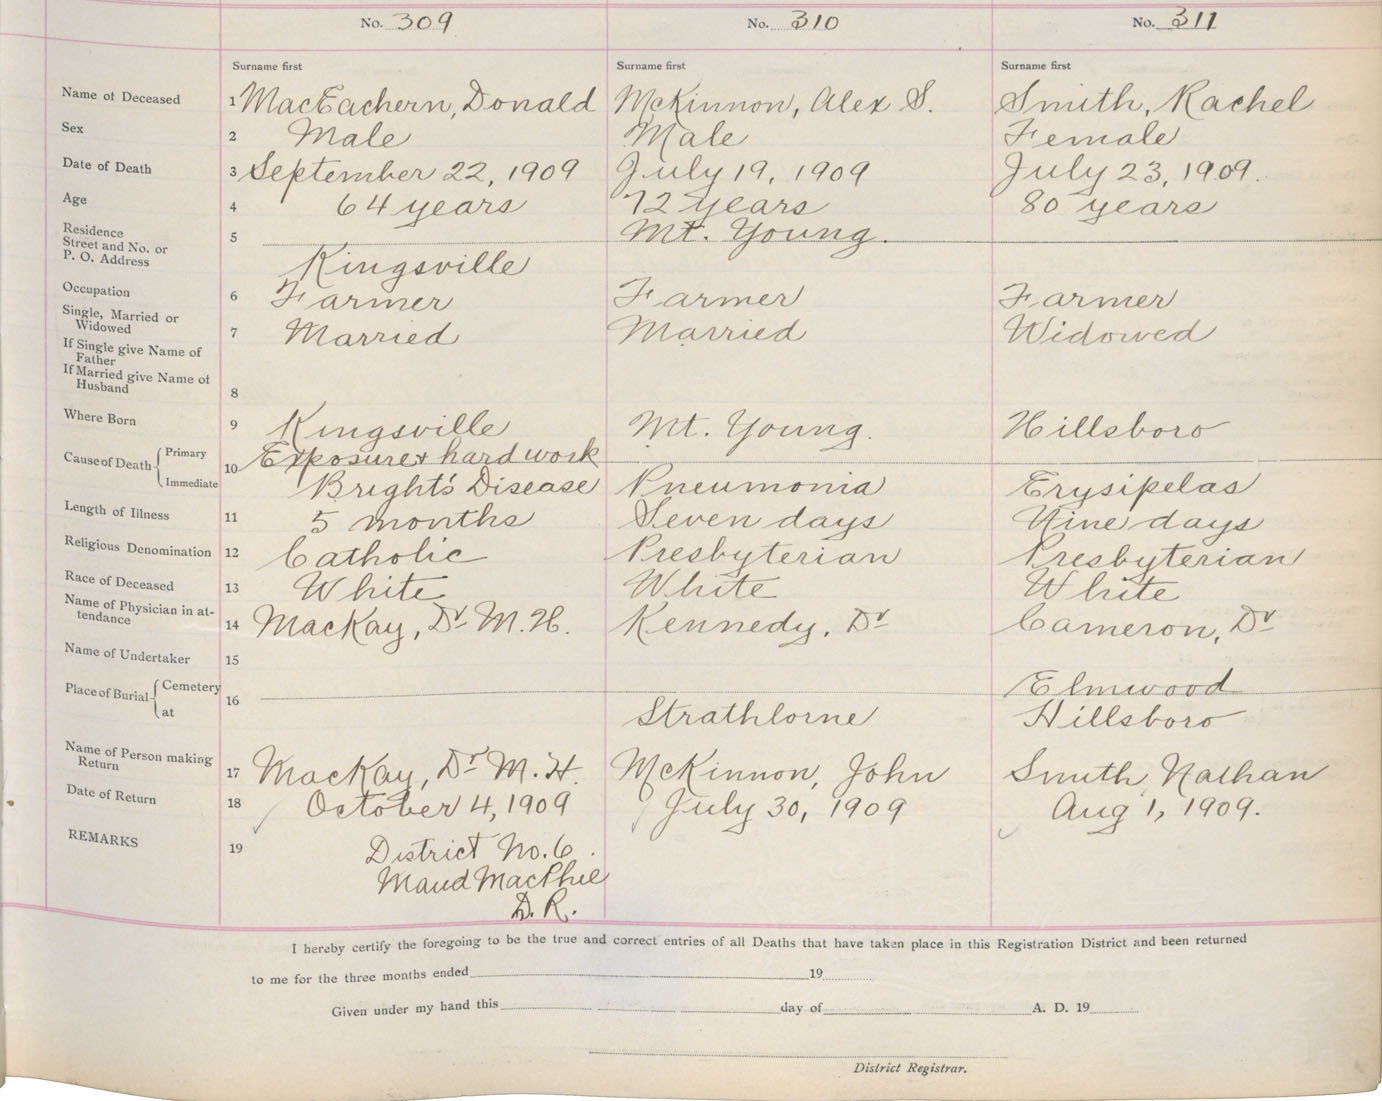 No. 309 No. 310 No. 311
Surname first Surname first Surname first
Name of Deceased 1 MacEachern, Donald McKinnon, Alex S. Smith, Rachel
Sex 2 Male Male Female
Date of Death 3 September 22, 1909 July 19, 1909 July 23, 1909.
Age 4 64 years 72 years 80 years
Residence
Street and No. or 5 Mt. Young.
P. O. Address Kingsville
Occupation 6 Farmer Farmer Farmer
Single, Married or
Widowed 7 Married Married Widowed
If Single give Name of
Father
If Married give Name of
Husband 8
Where Born 9 Kingsville Mt. Young. Hillsboro
Cause of Death Primary 10 Exposure & hard work
Immediate Bright's Disease Pneumonia Erysipelas
Length of Illness 11 5 months Seven days Nine days
Religious Denomination 12 Catholic Presbyterian Presbyterian
Race of Deceased 13 White White White
Name of Physician in at-
tendance 14 MacKay, Dr M. H. Kennedy, Dr Cameron, Dr
Name of Undertaker 15
Place of Burial Cemetery 16 Elmwood
at Strathlorne Hillsboro
Name of Person making
Return 17 MacKay, Dr M. H. McKinnon, John Smith, Nathan
Date of Return 18 October 4, 1909 July 30, 1909 Aug 1, 1909.
REMARKS 19 District No. 6.
Maud MacPhie
D. R.
I hereby certify the foregoing to be the true and correct entries of all Deaths that have taken place in this Registration District and been returned
to me for the three months ended 19
Given under my hand this day of A. D. 19
District Registrar.